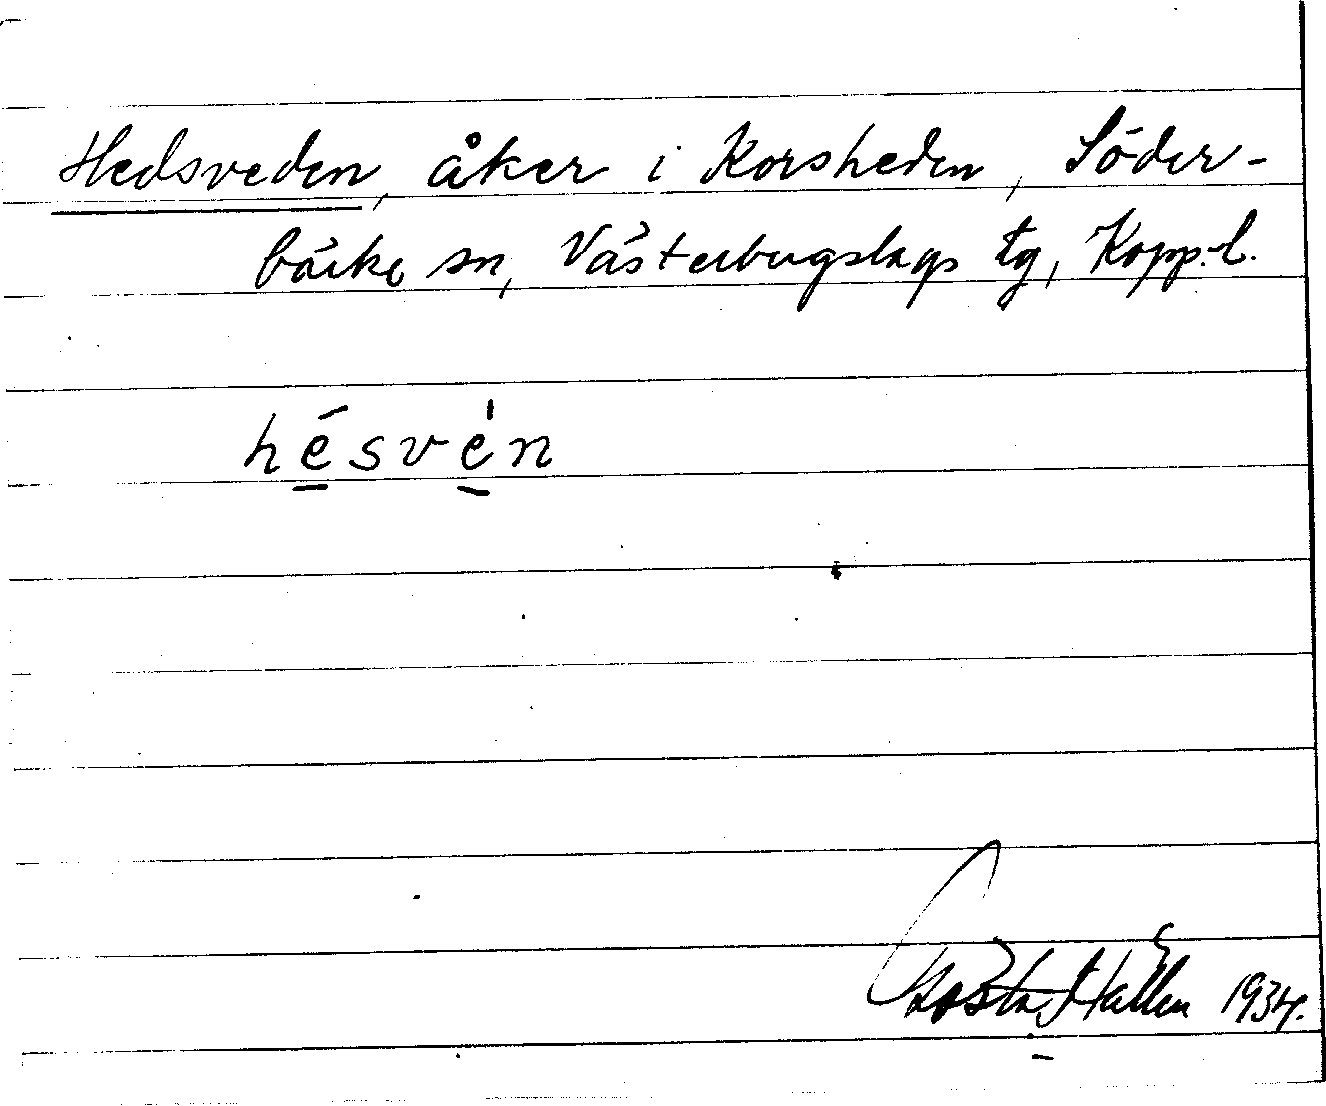 Hedsveden, åker i Korsheden, Söder-
bärke sn, Västerbergslags tg, Kopp.l.
hé̱své̱n
Gösta Hallén 1934.